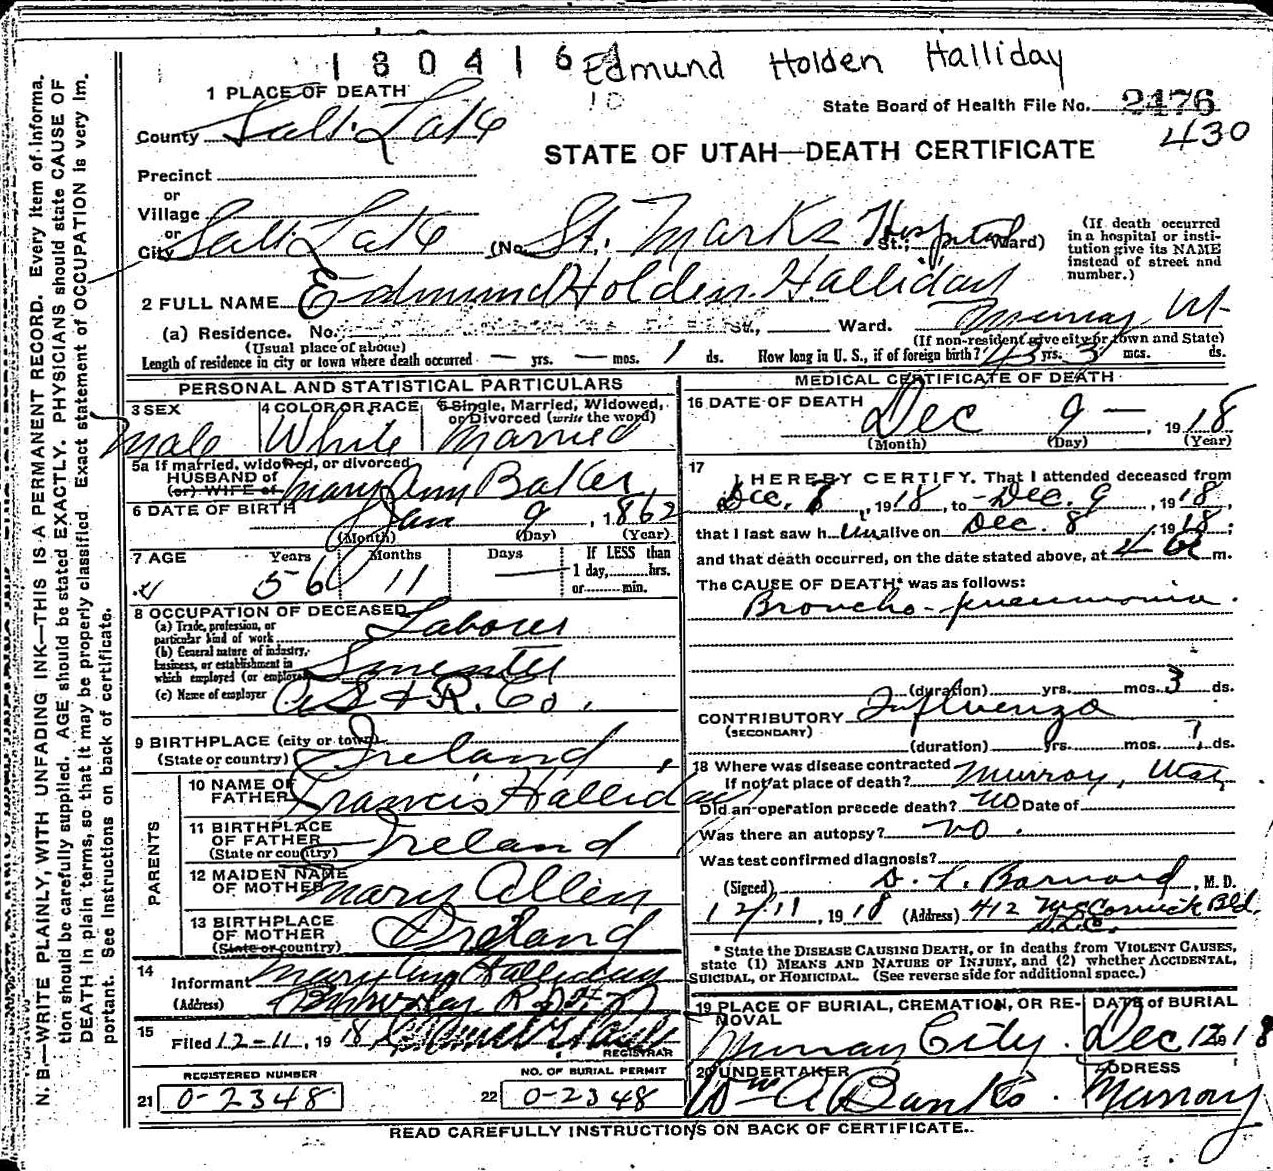 1 3 0 4 1 6 Edmund Holden Halliday
10
1 PLACE OF DEATH
State Board of Health File No. 2476
430
County Salt Lake
STATE OF UTAH—DEATH CERTIFICATE
Precinct
or
Village
or
City Salt Lake (No. St. Marks Hospital St.; Ward)
(If death occurred in a hospital or institution give its NAME instead of street and number.)
2 FULL NAME Edmund Holden Halliday
(a) Residence. No. St., Ward. Murray Ut
(Usual place of above) (If non-resident give city or town and State)
Length of residence in city or town where death occurred — yrs. — mos. 1 ds. How long in U. S., if of foreign birth? 43 yrs. 3 mos. ds.
PERSONAL AND STATISTICAL PARTICULARS
3 SEX 4 COLOR OR RACE 5 Single, Married, Widowed, or Divorced (write the word)
Male White Married
5a If married, widowed, or divorced
HUSBAND of
(or) WIFE of Mary Ann Baker
6 DATE OF BIRTH Jan 9, 1862
(Month) (Day) (Year)
7 AGE Years Months Days If LESS than
56 11 — 1 day, hrs.
or min.
8 OCCUPATION OF DECEASED
(a) Trade, profession, or particular kind of work Laborer
(b) General nature of industry, business, or establishment in which employed (or employer) Smelter
(c) Name of employer A S & R. Co.
9 BIRTHPLACE (city or town)
(State or country) Ireland
PARENTS
10 NAME OF FATHER Francis Halliday
11 BIRTHPLACE OF FATHER
(State or country) Ireland
12 MAIDEN NAME OF MOTHER Mary Allen
13 BIRTHPLACE OF MOTHER
(State or country) Ireland
14
Informant Mary Ann Halliday
(Address)
15
Filed 12-11, 1918
REGISTRAR
REGISTERED NUMBER NO. OF BURIAL PERMIT
21 0-2348 22 0-2348
MEDICAL CERTIFICATE OF DEATH
16 DATE OF DEATH Dec 9 —, 1918
(Month) (Day) (Year)
17
I HEREBY CERTIFY. That I attended deceased from
Dec. 8, 1918, to Dec. 9, 1918,
that I last saw him alive on Dec. 8, 1918;
and that death occurred, on the date stated above, at 4 a m.
The CAUSE OF DEATH* was as follows:
Broncho-pneumonia.
(duration) yrs. mos. 3 ds.
CONTRIBUTORY Influenza
(SECONDARY)
(duration) yrs. mos. 7 ds.
18 Where was disease contracted
if not at place of death? Murray, Utah
Did an operation precede death? No Date of
Was there an autopsy? no.
Was test confirmed diagnosis?
(Signed) D. L. Barnard, M. D.
12/11, 1918 (Address) 412 McCornick Bld.
S.L.C.
* State the DISEASE CAUSING DEATH, or in deaths from VIOLENT CAUSES,
state (1) MEANS AND NATURE OF INJURY, and (2) whether ACCIDENTAL,
SUICIDAL, or HOMICIDAL. (See reverse side for additional space.)
19 PLACE OF BURIAL, CREMATION, OR REMOVAL DATE of BURIAL
Murray City. Dec 12 1918
20 UNDERTAKER ADDRESS
Wm A Banks. Murray
READ CAREFULLY INSTRUCTIONS ON BACK OF CERTIFICATE.
N. B.—WRITE PLAINLY, WITH UNFADING INK—THIS IS A PERMANENT RECORD. Every item of informa-
tion should be carefully supplied. AGE should be stated EXACTLY. PHYSICIANS should state CAUSE OF
DEATH in plain terms, so that it may be properly classified. Exact statement of OCCUPATION is very im-
portant. See instructions on back of certificate.